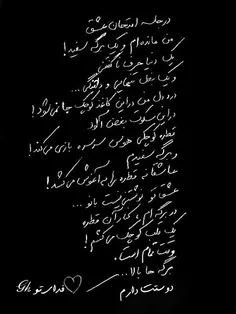 در جلسه امتحان عشق
من مانده‌ام و یک برگه سفید!
یک دنیا حرف ناگفتنی
و یک بغل تنهایی و دلتنگی...
درد دل من در این کاغذ کوچک جا نمی‌شود!
در این سکوت بغض آلود
قطره کوچکی هوس سرسره بازی می‌کند!
و برگه سفیدم
عاشقانه قطره را به آغوش می‌کشد!
عشق تو نوشتنی نیست بانو...
در برگه ام، کنار آن قطره
یک قلب کوچک می‌کشم!
وقت تمام است.
برگه ها بالا...
دوستت دارم
فدای تو